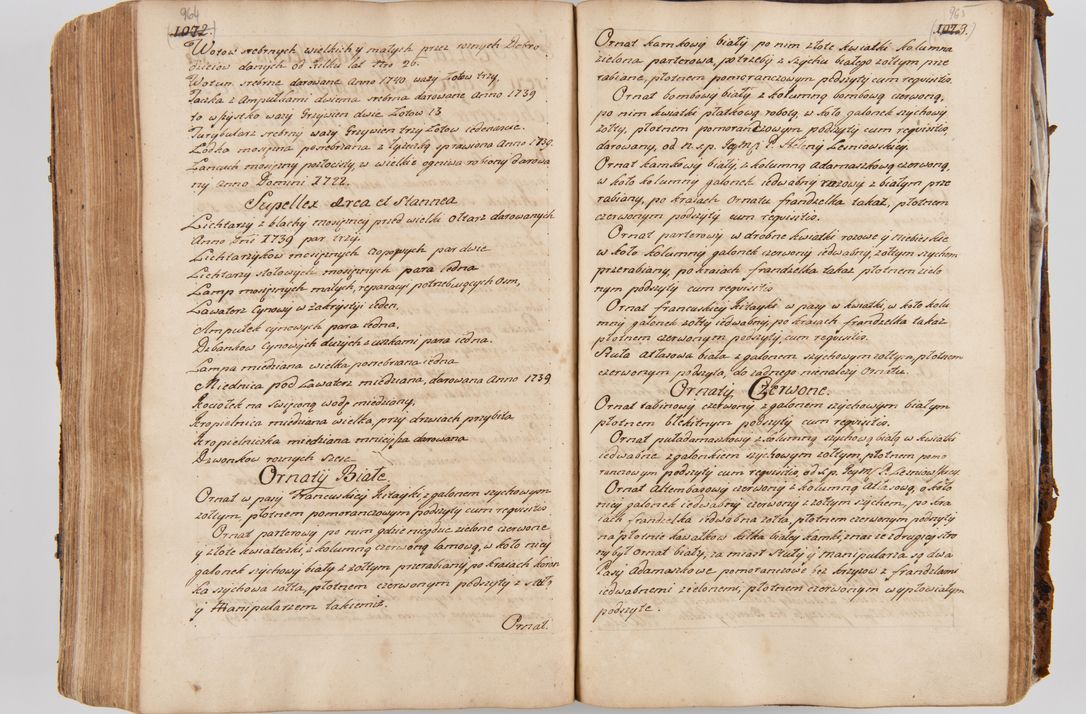 964
(1072.)
Wotow srebrnych wielkich y małych przez roznych Dobro
dzieiow danych od kilku lat Nro 26.
Wotum srebrne darowane Anno 1740 wazy Łotow trzy,
Taczka z Ampułkami dwiema srebrna darowane Anno 1739
to wszystko wazy Grzywien dwie Łotow 13
Turybularz srebrny wazy Grzywien trzy Łotow iedenascie.
Łodka mosiężna posrebrzana z łyszką sprawiona Anno 1730.
Łancuch mosiężny pozłocisty, w wielkie ogniwa robiony darowa
ny Anno Domini 1722.
Supellex Ærea et Stannea
Lichtarzy z blachy mosiężney przed wielki Ołtarz darowanych
Anno Dni 1739 par trzy.
Lichtarzykow mosiężnych par dwie
Lichtarzy stołowych mosiężnych para iedna
Lamp mosiężnych małych, reparacyi potrzebuiących Osm,
Lawaterz Cynowy w Zakrystyi ieden,
Ampułek cynowych para iedna,
Dzbankow Cynowych duzych z uszkami para iedna.
Lampa miedziana wielka posrebrzana iedna
Miednica pod Lawaterz miedziana, darowana Anno 1739
Kociołek na Swięconą wodę miedziany,
Kropielnica miedziana wielka, przy drzwiach przybita
Kropielniczka miedziana mnieysza darowana
Dzwonkow roznych Szesc
Ornaty Białe
Ornat w pasy Francuskiey Kitayki z galonem szychowym
zołtym, płotnem pomoranczowym podszyty cum requisitio
Ornat parterowy po nim gdzie niegdzie zielone czerwone
y złote kwiateczki, z kolumną czerwoną lamową, w koło niey
galonek szychowy biały z zołtym przerabiany, po kraiach koron
ka szychowa zołta, płotnem czerwonym podszyty z stułą
y Manipularzem takiemiz.
Ornat.
965
(1073.)
Ornat kamkowy biały po nim złote kwiatki kolumna
zielona parterowa, potrzeby z Szychu białego zołtym prze
rabiane, płotnem pomoranczowym podszyty cum requisitio.
Ornat bombowy biały, z kolumną bombową czerwoną,
po nim kwiatki płatkową robotą, w koło galonek szychowy
zołty, płotnem pomoranczowym podszyty cum requisitio
darowany, od n. s.p. Jeym P. Heleny Lesniowskiey.
Ornat kamkowy biały, z kolumną Adamaszkową czerwoną,
w koło kolumny galonek iedwabny rozowy z białym prze
rabiany, po kraiach Ornatu frandzelka takaż, płotnem
czerwonym podszyty cum requisitio.
Ornat parterowy w drobne kwiatki rozowe y niebieskie
w koło kolumny galonek czerwony iedwabny, zołtym szychem
przerabiany, po kraiach frandzelka takaz płotnem zielo
nym podszyty cum requisitio.
Ornat francuskiey Kitayki w pasy w kwiatki, w koło kolu
mny galonek zołty iedwabny, po kraiach frandzelka takaz
płotnem czerwonym podszyty, cum requisitio.
Stuła Atłasowa biała z galonem szychowym zołtym, płotnem
czerwonym podszyta, do zadnego nienalezy Ornatu.
Ornaty Czerwone.
Ornat tabinowy czerwony z galonem szychowym białym
płotnem błekitnym podszyty cum requisitio.
Ornat puładamaszkowy z kolumną szychową białą w kwiatki
iedwabne z galonkiem szychowym zołtym, płotnem pomo
ranczowym podszyty cum requisitio od s.p. Jeym P. Lesniowskiey.
Ornat Altembasowy czerwony z kolumną Atłasową, o koło
niey galonek iedwabny czerwony z zołtym szychem, po kra
iach frandzelka iedwabna zołta, płotnem czerwonym podszyty
na płotnie kawałkow kilka białey kamki, znac ze z drugiey stro
ny był Ornat biały, za miast Stuły y manipularza są dwa
Pasy Adamaszkowe pomoranczowe bez krzyzow z frandzlami
iedwabnemi zielonemi, płotnem czerwonym wypłowiałym
podszyte.